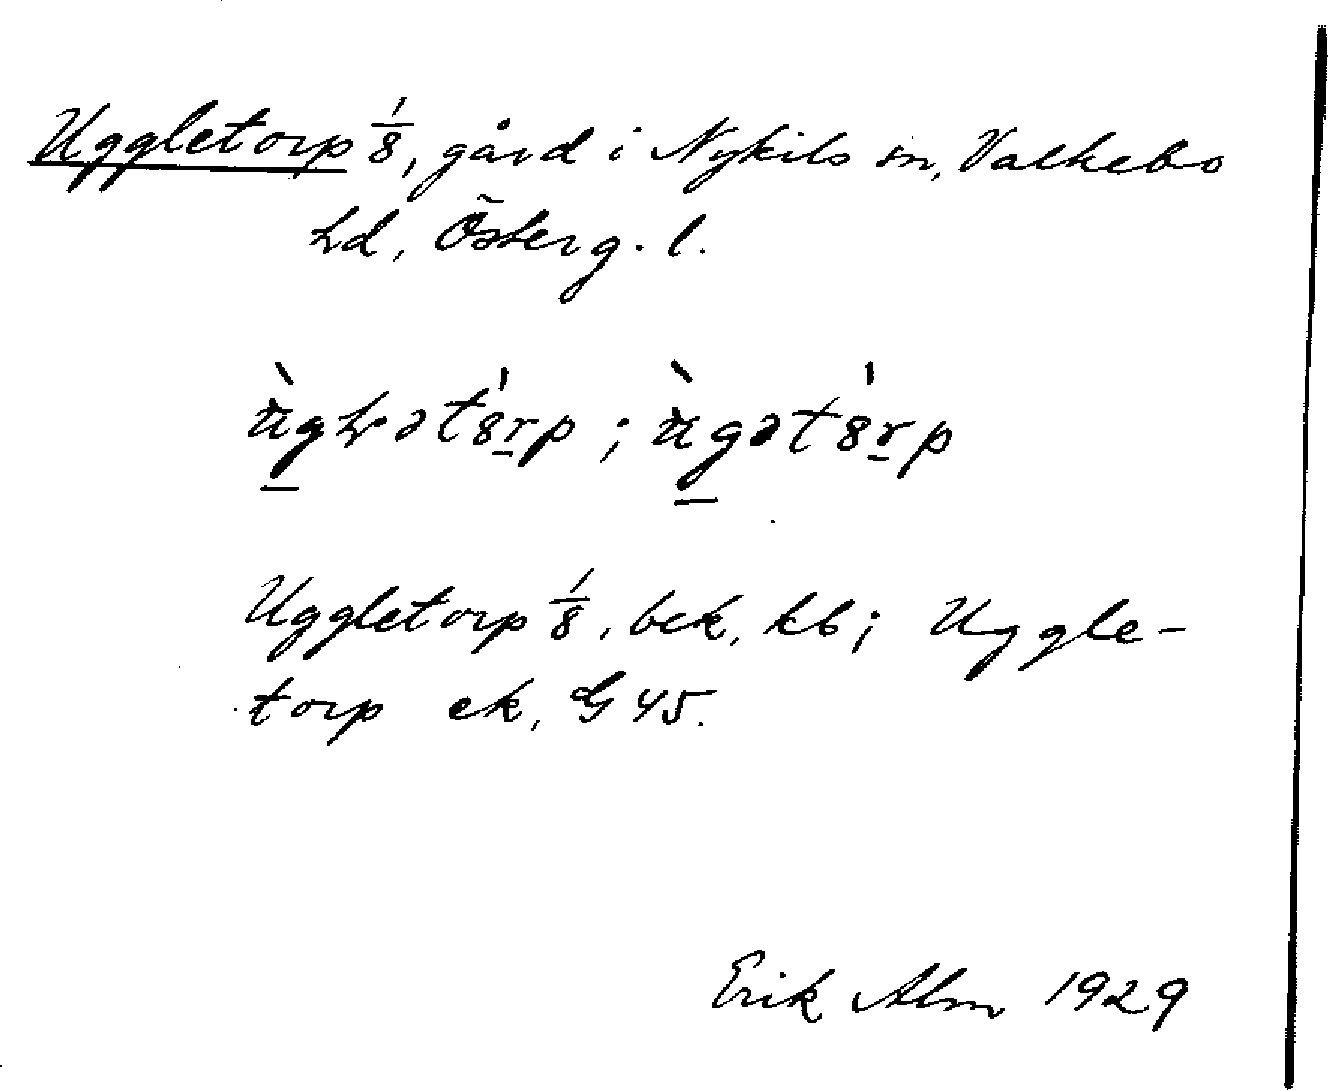 Uggletorp 1/8, gård i Nykils sn, Valkebo
hd, Österg. l.
Uggletorp 1/8, bek, kb; Uggle-
torp ek, G 45.
Erik Alm 1929